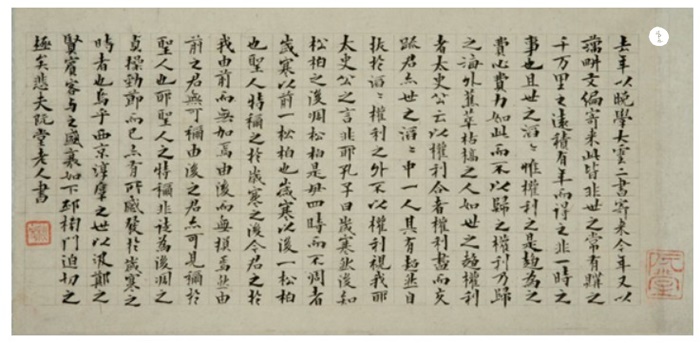 去年以晚學大雲二書寄來今年又以
藕畊文編寄來此皆非世之常有購之
千万里之遠積有年而得之非一時之
事也且世之滔〻惟權利之是趨爲之
費心費力如此而不以歸之權利乃歸
之海外蕉萃枯槁之人如世之趨權利
者太史公云以權利合者權利盡而交
踈君亦世之滔〻中一人其有超然自
拔於滔〻權利之外不以權利視我耶
太史公之言非耶孔子曰歲寒然後知
松柏之後凋松柏是毋四時而不凋者
歲寒以前一松柏也歲寒以後一松柏
也聖人特稱之於歲寒之後今君之於
我由前而無加焉由後而無損焉然由
前之君無可稱由後之君亦可見稱於
聖人也耶聖人之特稱非徒爲後凋之
貞操勁節而已亦有所感發於歲寒之
時者也烏乎西京淳厚之世以汲鄭之
賢賓客與之盛衰如下邳榜門迫切之
極矣悲夫阮堂老人書
阮堂